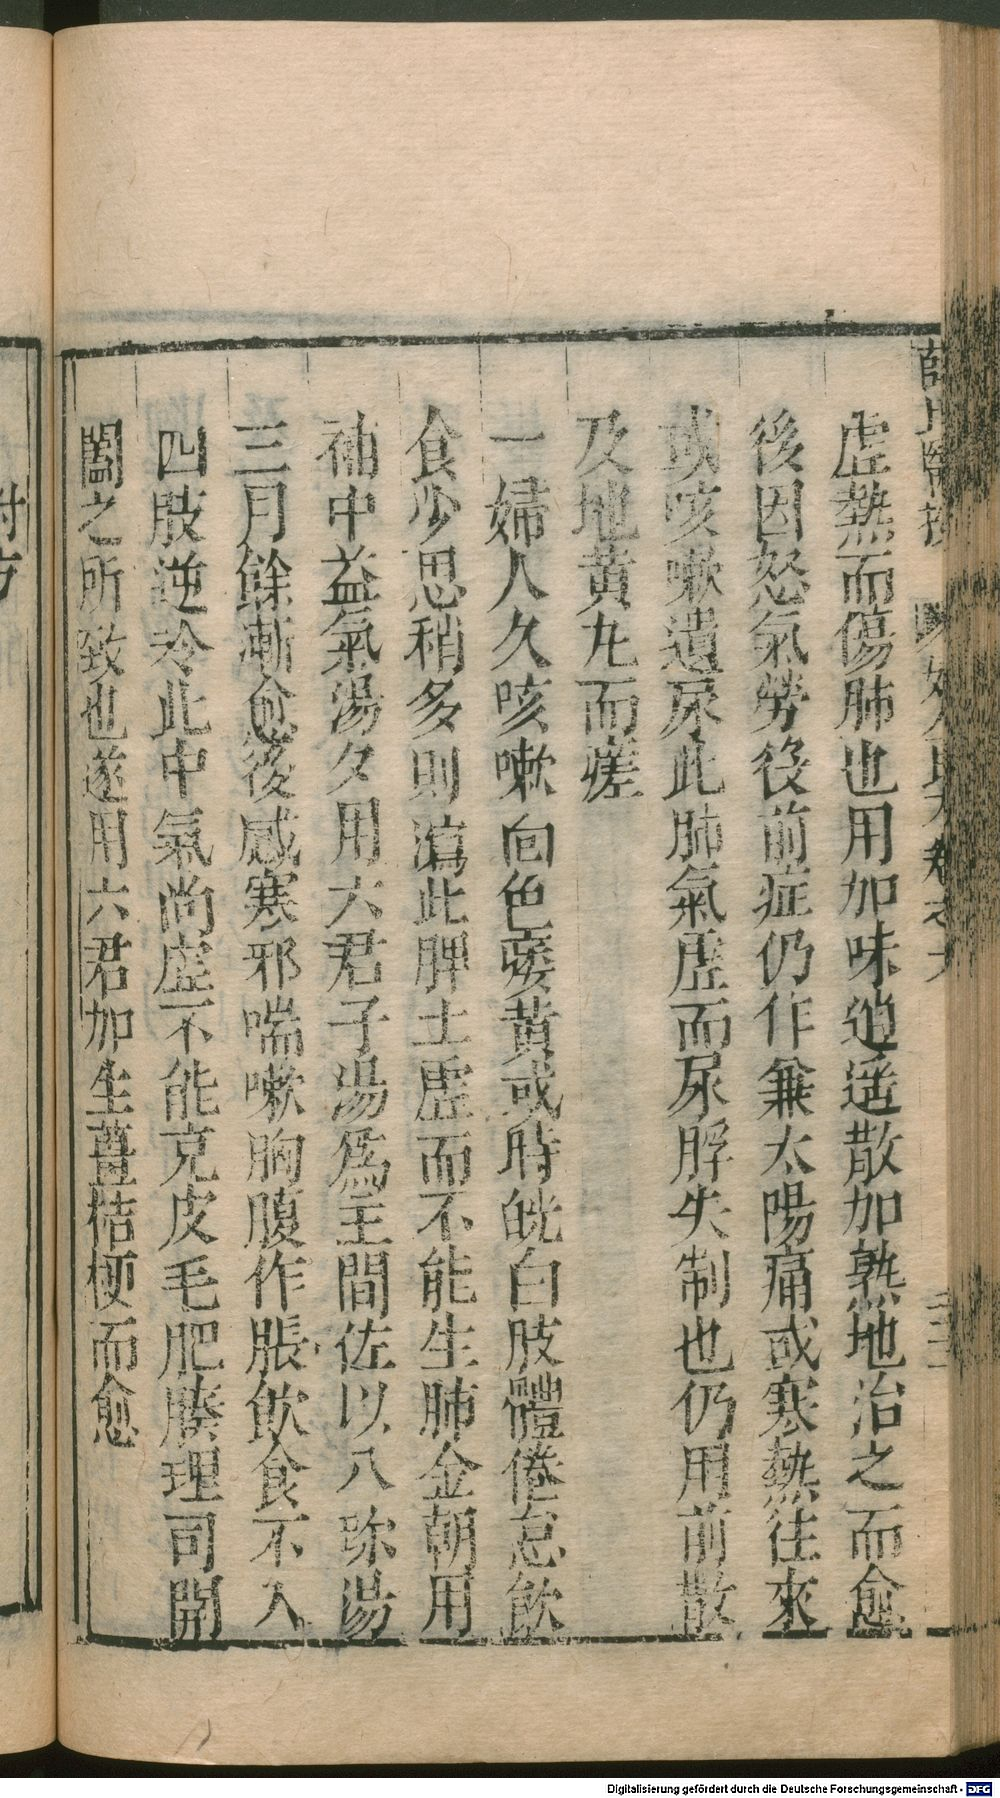 虛熱而傷肺也用加味逍遥散加熟地治之而愈
後因怒氣勞役前症仍作兼太陽痛或寒熱往來
或咳嗽遺尿此肺氣虛而尿脬失制也仍用前散
及地黄丸而瘥
一婦人久咳嗽面色萎黄或時㿠白肢體倦怠飲
食少思稍多則瀉此脾土虛而不能生肺金朝用
補中益氣湯夕用六君子湯爲主間佐以八珎湯
三月餘漸愈後感寒邪喘嗽胸腹作脹飲食不入
四肢逆冷此中氣尚虛不能充皮毛肥腠理司開
闔之所致也遂用六君加生薑桔梗而愈
附方
Digitalisierung gefördert durch die Deutsche Forschungsgemeinschaft - DFG